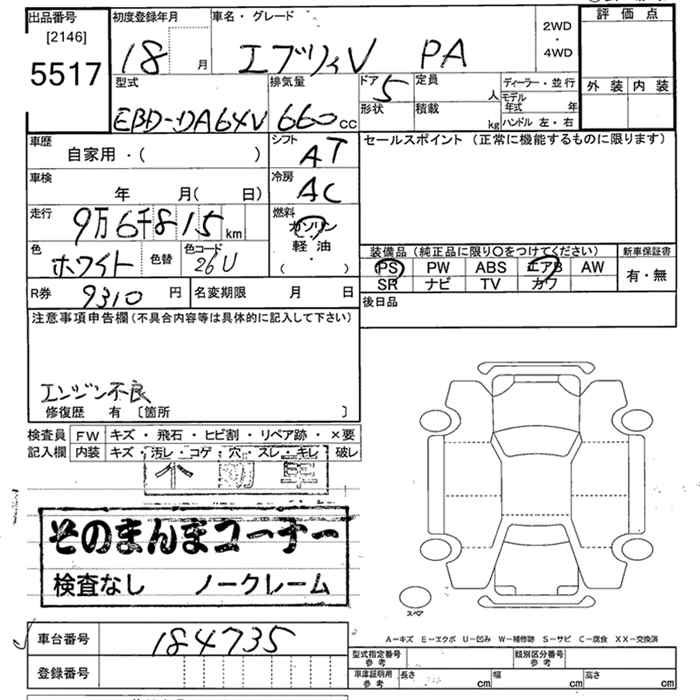 出品番号 初度登録年月 車名・グレード 2WD 評価点
[2146] ・
5517 18 月 エブリィV PA 4WD
型式 排気量 ドア 5 定員 人 ディーラー・並行 外装 内装
モデル年式 年
EBD-DA64V 660cc 形状 積載 kg ハンドル 左・右
車歴 シフト セールスポイント (正常に機能するものに限ります)
自家用・( ) AT
車検 冷房
年 月(日) AC
走行 燃料
9万6千815km ガソリン
色 色替 色コード 軽油 装備品 (純正品に限り○をつけてください) 新車保証書
ホワイト 26U (・) PS PW ABS エアB AW 有・無
SR ナビ TV カワ
R券 9310円 名変期限 月 日 後日品
注意事項申告欄 (不具合内容等は具体的に記入して下さい)
エンジン不良
修復歴 有 〔箇所 〕
検査員 FW キズ・飛石・ヒビ割・リペア跡・×要
記入欄 内装 キズ・汚レ・コゲ・穴・スレ・キレ・破レ
そのまんまコーナー
検査なし ノークレーム
スペア
A-キズ E-エクボ U-凹み W-補修跡 S-サビ C-腐食 XX-交換済
車台番号 184735 型式指定番号 参考 類別区分番号 参考
登録番号 車庫証明用 参考 長さ cm 幅 cm 高さ cm